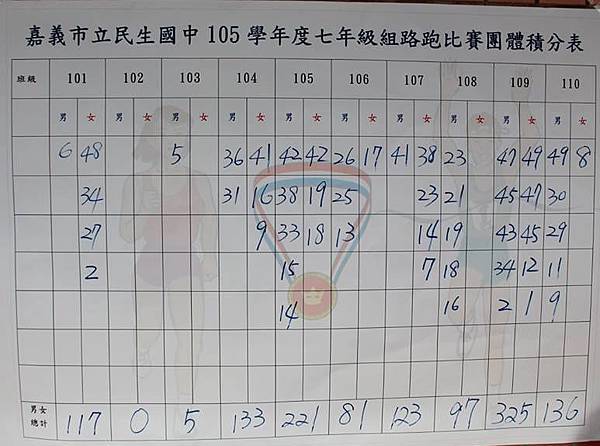 嘉義市立民生國中105學年度七年級組路跑比賽團體積分表
班級 101 102 103 104 105 106 107 108 109 110
男 女 男 女 男 女 男 女 男 女 男 女 男 女 男 女 男 女 男 女
6 48 5 36 41 42 42 26 17 41 38 23 47 49 49 8
34 31 16 38 19 25 23 21 45 47 30
27 9 33 18 13 14 19 43 45 29
2 15 7 18 34 12 11
14 16 2 1 9
男女
總計 117 0 5 133 221 81 123 97 325 136